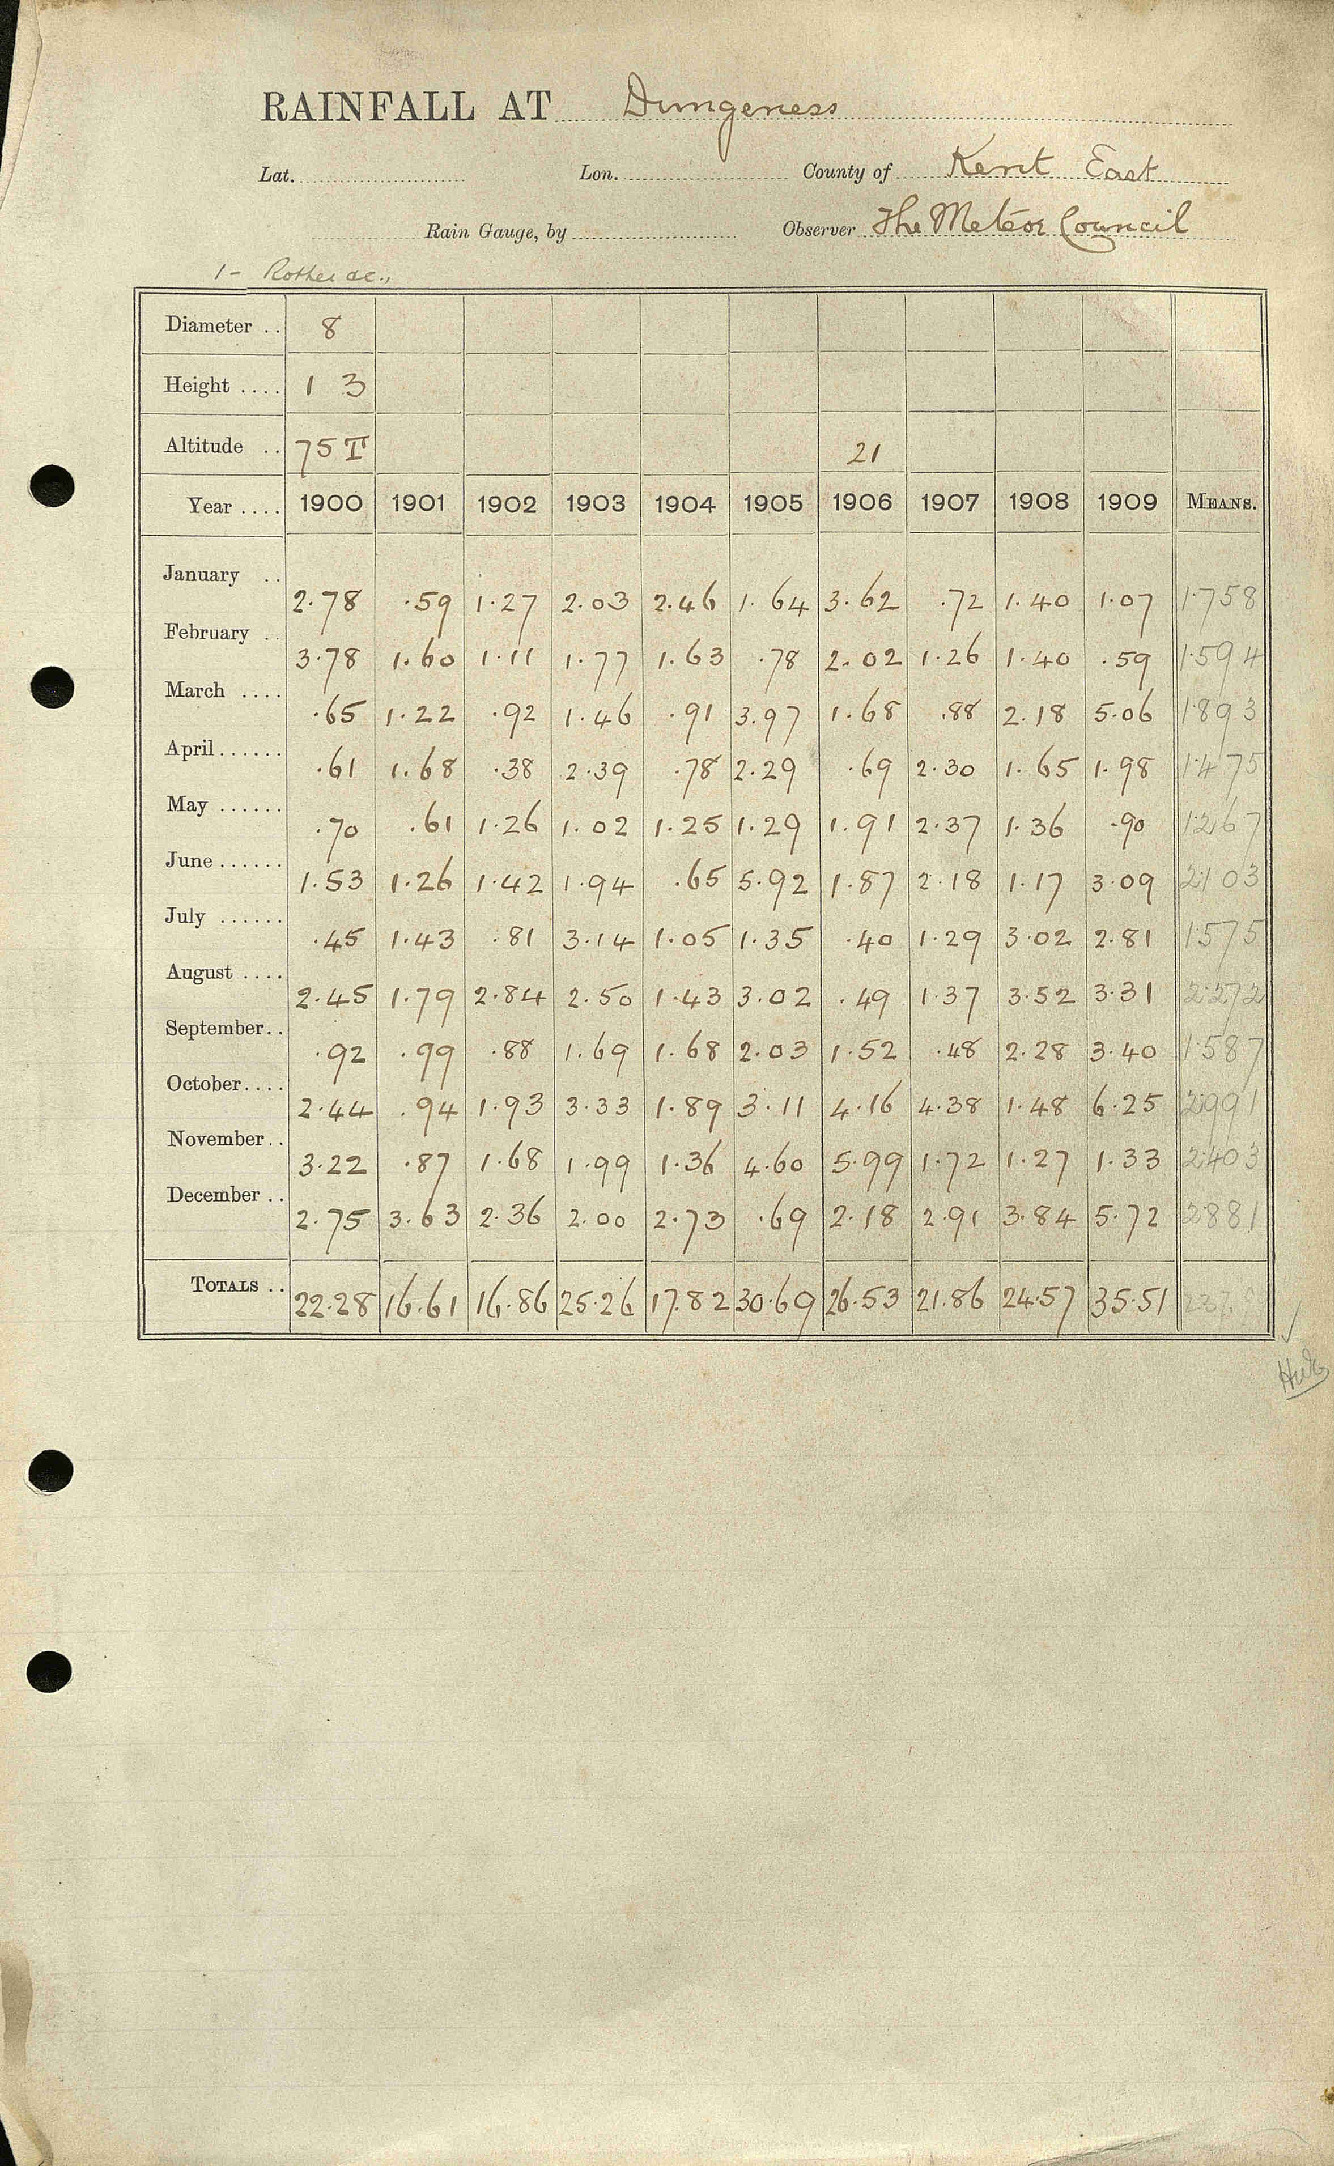 RAINFALL AT Dungeness
Lat. Lon. County of Kent East
Rain Gauge, by Observer The Meteor Council
1 - Rother
Diameter .. 8
Height .... 1 3
Altitude .. 75 T 21
Year .... 1900 1901 1902 1903 1904 1905 1906 1907 1908 1909 MEANS.
January .. 2.78 .59 1.27 2.03 2.46 1.64 3.62 .72 1.40 1.07 1.758
February .. 3.78 1.60 1.11 1.77 1.63 .78 2.02 1.26 1.40 .59 1.594
March .... .65 1.22 .92 1.46 .91 3.97 1.68 .88 2.18 5.06 1.893
April ...... .61 1.68 .38 2.39 .78 2.29 .69 2.30 1.65 1.98 1.475
May ...... .70 .61 1.26 1.02 1.25 1.29 1.91 2.37 1.36 .90 1.267
June ...... 1.53 1.26 1.42 1.94 .65 5.92 1.87 2.18 1.17 3.09 2.103
July ...... .45 1.43 .81 3.14 1.05 1.35 .40 1.29 3.02 2.81 1.575
August .... 2.45 1.79 2.84 2.50 1.43 3.02 .49 1.37 3.52 3.31 2.272
September .. .92 .99 .88 1.69 1.68 2.03 1.52 .48 2.28 3.40 1.587
October .... 2.44 .94 1.93 3.33 1.89 3.11 4.16 4.38 1.48 6.25 2.991
November .. 3.22 .87 1.68 1.99 1.36 4.60 5.99 1.72 1.27 1.33 2.403
December .. 2.75 3.63 2.36 2.00 2.73 .69 2.18 2.91 3.84 5.72 2.881
TOTALS .. 22.28 16.61 16.86 25.26 17.82 30.69 26.53 21.86 24.57 35.51